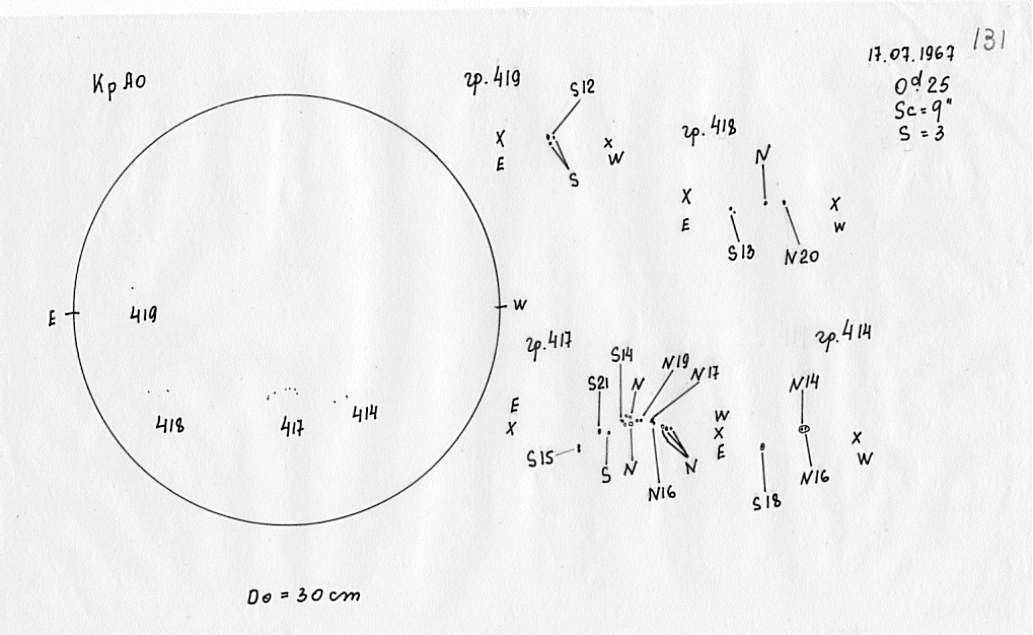 131
17.07.1967
0d 25
Sc = 9"
S = 3
КрАО
E
W
419
418
417
414
D⊙ = 30 cm
гр. 419
S12
X
E
X
W
S
гр. 418
N
X
E
X
W
S13
N20
гр. 417
S14
N19
N17
S21
N
E
X
W
X
E
S15
S
N
N
N16
гр. 414
N14
X
W
N16
S18